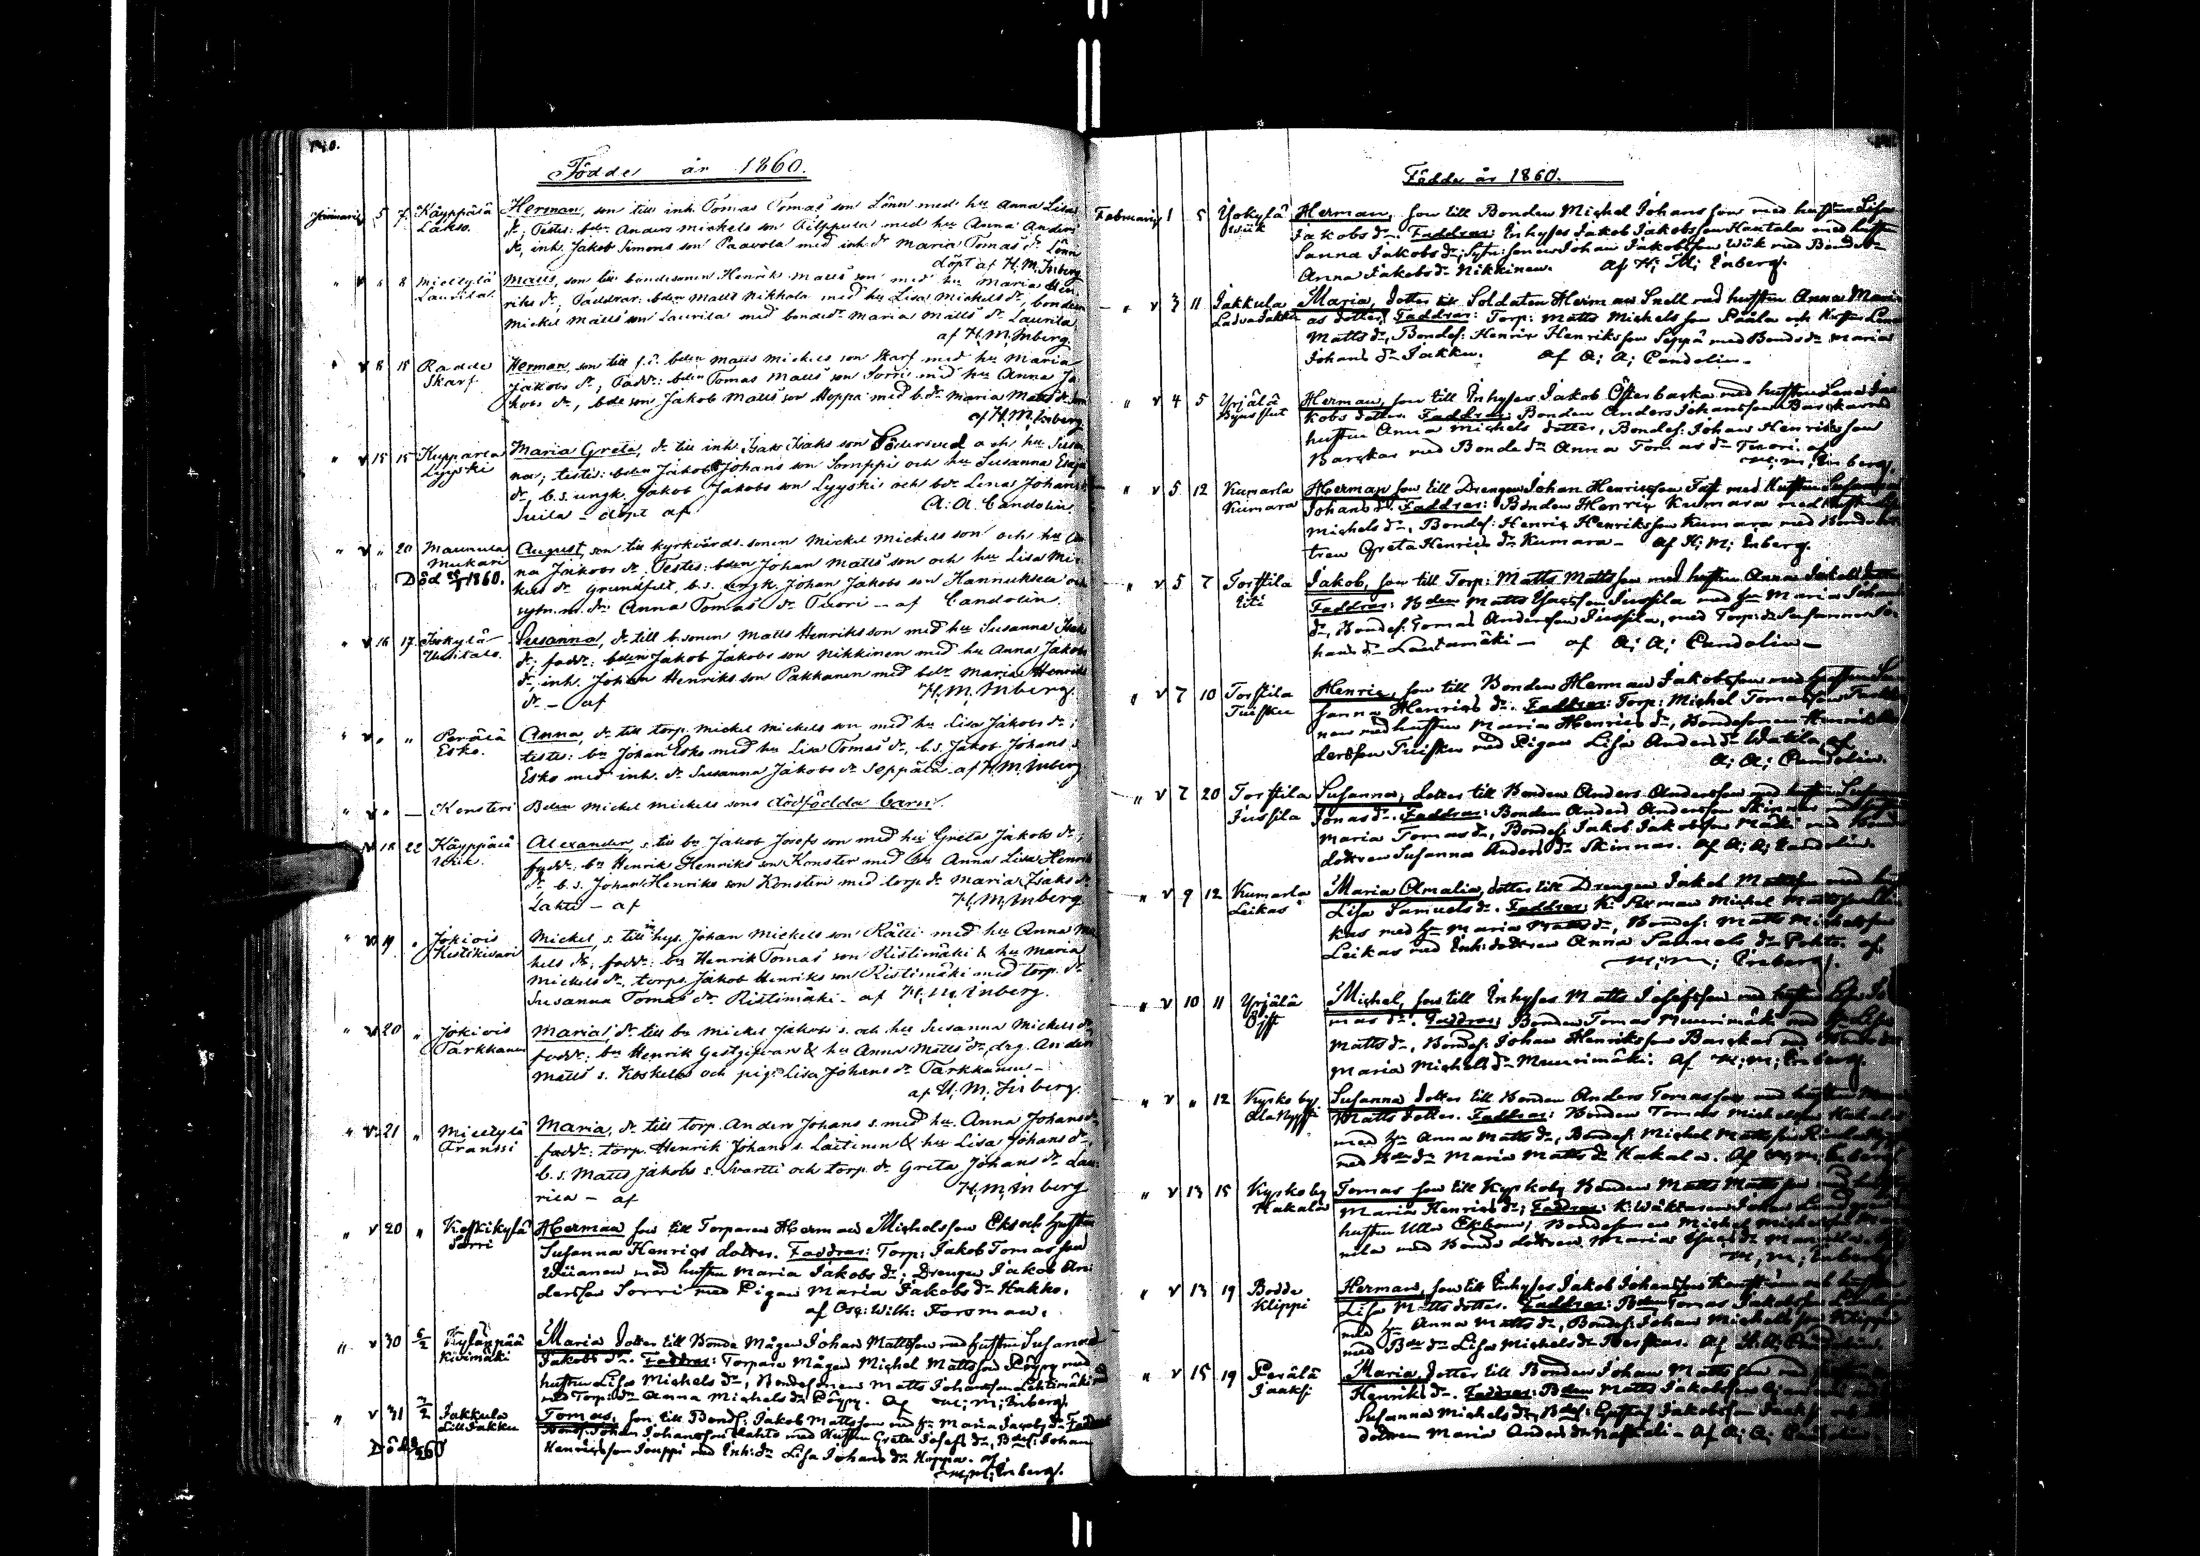 Födde år 1860.
Januarii 5 7. Käyppälä Herman, son till inh. Tomas Tomas son Lönn med hu Anna Lisa
Lakso. dr, Testes: bdn Anders Michels son Pilppula med hu Anna Anders
dr, inh. Jakob Simons son Paavola med inh. dr Maria Tomas dr Lönn
döpt af H. M. Inberg
" v " 8 Mieltylä Matts, son till bondesonen Henrik Matts son med hu Maria Hen
Laurila. riks dr, Faddrar: bden Matts Nikkola med hu Lisa Mickels dr, bondeson
Mickel Matts son Laurila med bondedr Maria Matts dr Laurila
af H. M. Inberg.
" v 8 15 Radde Herman, son till bden Matts Mickels son Skarf med hu Maria
Skarf. Jakobs dr, Faddr: bden Tomas Matts son Sorri med hu Anna Ja
kobs dr, bde son Jakob Matts son Hoppa med b.dr Maria Matts dr
af H. M. Inberg
" v 15 15 Kupparla Maria Greta, dr till inh. Isak Isaks son Södersved och hu Susan
Lyyski na; testes: bden Jakob Johans son Somppi och hu Susanna
dr, b.s. ungk. Jakob Jakobs son Lyyski och bdr Lena Johans
Suila – döpt af A. A. Candolin
" v " 20 Maunula August, son till kyrkvärds sonen Mickel Mickels son och hu An
Mukari na Jakobs dr. Testes: bden Johan Matts son och hu Lisa Mic
Död 1860. kels dr Grundfelt, b.s. ungk. Johan Jakobs son Hannuksela och
Anna Tomas dr Tuori – af Candolin.
" v 16 17. Isokylä Susanna, dr till b. sonen Matts Henriks son med hu Susanna Isaks
Uusitalo. dr; faddr: bden Jakob Jakobs son Nikkinen med hu Anna Jakobs
dr, inh. Johan Henriks son Pakkanen med bdr Maria Henriks
dr – af H. M. Inberg.
" v " " Perälä Anna, dr till torp. Mickel Mickels son med hu Lisa Jakobs dr;
Esko. testes: bn Johan Esko med hu Lisa Tomas dr, b.s. Jakob Johans s.
Esko med inh. dr Susanna Jakobs dr Seppälä – af H. M. Inberg
" v " — Konsteri Bden Mickel Mickels sons dödfödda barn.
v 18 22 Käyppälä Alexander, s. till bn Jakob Josefs son med hu Greta Jakobs dr;
Wiik. faddr. bn Henrik Henriks son Konster med hu Anna Lisa Henriks
dr, b.s. Johan Henriks son Konsteri med torp. dr Maria Isaks dr
Lahti – af H. M. Inberg
" v 19 " Jokiois Mickel, s. till inhys. Johan Mickels son Rätti med hu Anna Mic
Kistikivari kels dr; faddr: bn Henrik Tomas son Ristimäki & hu Maria
Mickels dr, torps. Jakob Henriks son Ristimäki med torp. dr
Susanna Tomas dr Ristimäki – af H. M. Inberg.
" v 20 " Jokiois Maria, dr till bn Mickel Jakobs s. och hu Susanna Mickels dr
Tarkkanen faddr: bn Henrik Gestgifvars & hu Anna Matts dr, drg. Anders
Matts s. Koskelas och pig. Lisa Johans dr Tarkkanen –
af H. M. Inberg.
" v 21 " Mieltylä Maria, dr till torp. Anders Johans s. med hu Anna Johans dr,
Franssi faddr: torp. Henrik Johans s. Laitinen & hu Lisa Johans dr,
b.s. Matts Jakobs s. Svartti och torp. dr Greta Johans dr Lau
rila – af H. M. Inberg
" v 20 " Keskikylä Herman son till Torparen Herman Michelsson Ek och hustru
Sorri Susanna Henrics dotter. Faddrar: Torp: Jakob Tomasson
Wiianen med hustru Maria Jakobs dr; Drengen Jakob An
dersson Sorri med Pigan Maria Jakobs dr Kakko.
af Osc: Wilh: Forsman.
" v 30 5/2 Maria dotter till Bonde Mågen Johan Mattsson med hustru Susanna
Kivimäki Jakobs dr. Faddrar: Torpare Mågen Michel Mattsson Pöyry med
hustru Lisa Michels dr, Bondesonen Matts Johansson Lehtimäki
med Torp: dr Anna Michels dr Pöyry. Af H; M; Enberg.
" v 31 7/2 Jakkula Tomas, son till Bondes: Jakob Mattsson med hu Maria Jacobs dr. Faddrar
Lill Jakku Bondes: Johan Johansson Lahto med hustru Greta Josefs dr, Bdes: Johan
Död Henricsson Jouppi med Inh: dr Lisa Johans dr Hoppa. af
H; M; Enberg.
Födde år 1860.
Februarii 1 5 Yokylä Herman, son till Bonden Michel Johansson med hustru Lisa
Wiik Jakobs dr. Faddrar: Inhyses Jakob Jakobsson Kantala med hustru
Sanna Jakobs dr; Johan Jakobsson Wiik med Bondedr
Anna Jakobs dr Nikkinen. Af H; M; Enberg.
" v 3 11 Jakkula Maria, dotter till Soldaten Herman Snell med hustru Anna Mari
Ladvajakku as dotter; Faddrar: Torp: Matts Michelsson Pääla och hustru Lena
Matts dr, Bondes: Henric Henriksson Seppä med Bonde dr Maria
Johans dr Jakku. af A; A; Candolin –
" v 4 5 Yrjälä Herman, son till Inhyses Jakob Österbacka med hustru Lena Ja
kobs dotter. Faddrar: Bonden Anders Johansson Barckar med
hustru Anna Michels dotter, Bondes: Johan Henricsson
Barckar med Bonde dr Anna Tomas dr Tuori. af
H; M; Enberg.
" v 5 12 Kumarla Herman son till Drengen Johan Henricsson Fält med hustru Susanna
Kumara Johans dr. Faddrar: Bonden Henric Kumara med hustru
Michels dr, Bondes: Henric Henriksson Kumara med Bondedot
tren Greta Henrics dr Kumara – Af H; M; Enberg.
" v 5 7 Torttila Jakob, son till Torp: Matts Mattsson med hustru Anna Jakobs dotter
Iiti Faddrar: Bden Matts Jussila med hu Maria Johans
dr, Bondes: Tomas Andersson Jussila, med Torp: dr Susanna Jo
hans dr Lautamäki – af A; A; Candolin –
" v 7 10 Torttila Henric, son till Bonden Herman Jakobsson med hustru Su
Tuisku sanna Henrics dr. Faddrar: Torp: Michel Tomasson
nen med hustru Maria Henrics dr, Bondesonen Henric
dersson Tuisku med Pigan Lisa Anders dr Watila, af
A; A; Candolin.
" v 7 20 Torttila Susanna, dotter till Bonden Anders Andersson med hustru Susanna
Jussila Jonas dr. Faddrar: Bonden Anders Andersson Skinnas med hustru
Maria Tomas dr, Bondes: Jakob Jakobsson Mäki med Bonde
dottren Susanna Anders dr Skinnas. Af A; A; Candolin.
" v 9 12 Kumarla Maria Amalia, dotter till Drengen Jakob Mattsson med hustru
Leikas Lisa Samuels dr. Faddrar: K: Michel Mattsson Lei
kas med hu Maria Matts dr, Bondes: Matts Michelsson
Leikas med Inh: dottren Anna Samuels dr Pehto. af
H; M; Enberg.
" v 10 11 Yrjälä Michel, son till Inhyses Matts Josefsson med hustru Lisa To
mas dr. Faddrar: Bonden Tomas Muurimäki med hu Lisa
Matts dr, Bondes: Johan Henriksson Barckar med Bonde dr
Maria Michels dr Muurimäki. Af H; M; Enberg.
" v " 12 Kyrkoby Susanna dotter till Bonden Anders Tomasson med hustru Maria
Matts dotter. Faddrar: Bonden Tomas Michelsson Kakala
med hu Anna Matts dr, Bondes: Michel Mattsson
med Bde dr Maria Matts dr Kakala. Af H; M; Enberg
" v 13 15 Kyrkoby Tomas son till Kyrkoby Bonden Matts Mattsson med hustru
Kakala Maria Henrics dr; Faddrar: K: Wäktaren Johan Lund med
hustru Ulla Ekbom; Bondesonen Michel Michelsson
nila med Bonde dottren Maria
H; M; Enberg
" v 13 19 Bodde Herman, son till Inhyses Jakob Johansson och hustru
Klippi Lisa Matts dotter. Faddrar: Bden Tomas Jakobsson
med hu Anna Matts dr, Bondes: Johan Michelsson Klippi
med Bde dr Lisa Michels dr
" v 15 19 Perälä Maria, dotter till Bonden Johan Mattsson med hustru
Jaakji Henriks dr. Faddrar: Bden Matts Jakobsson
Susanna Michels dr, Bdes: Gustaf Jakobsson
dottren Maria Anders dr – Af A; A; Candolin